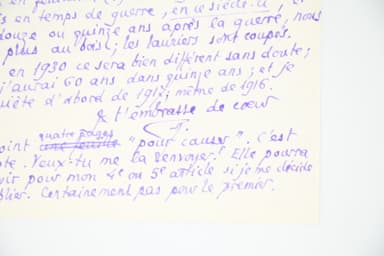 en temps de guerre, en ce siècle-ci, et
douze ou quinze ans après la guerre, nous
plus au bois; les lauriers sont coupés.
en 1930 ce sera bien différent sans doute;
j'aurai 60 ans dans quinze ans; et je
quiète d'abord de 1917; même de 1916.
& t'embrasse de cœur
oint quatre pages "pour causer". C'est
te. Veux-tu me la renvoyer? Elle pourra
vir pour mon 4e ou 5e article si je me décide
blier. Certainement pas pour le premier.